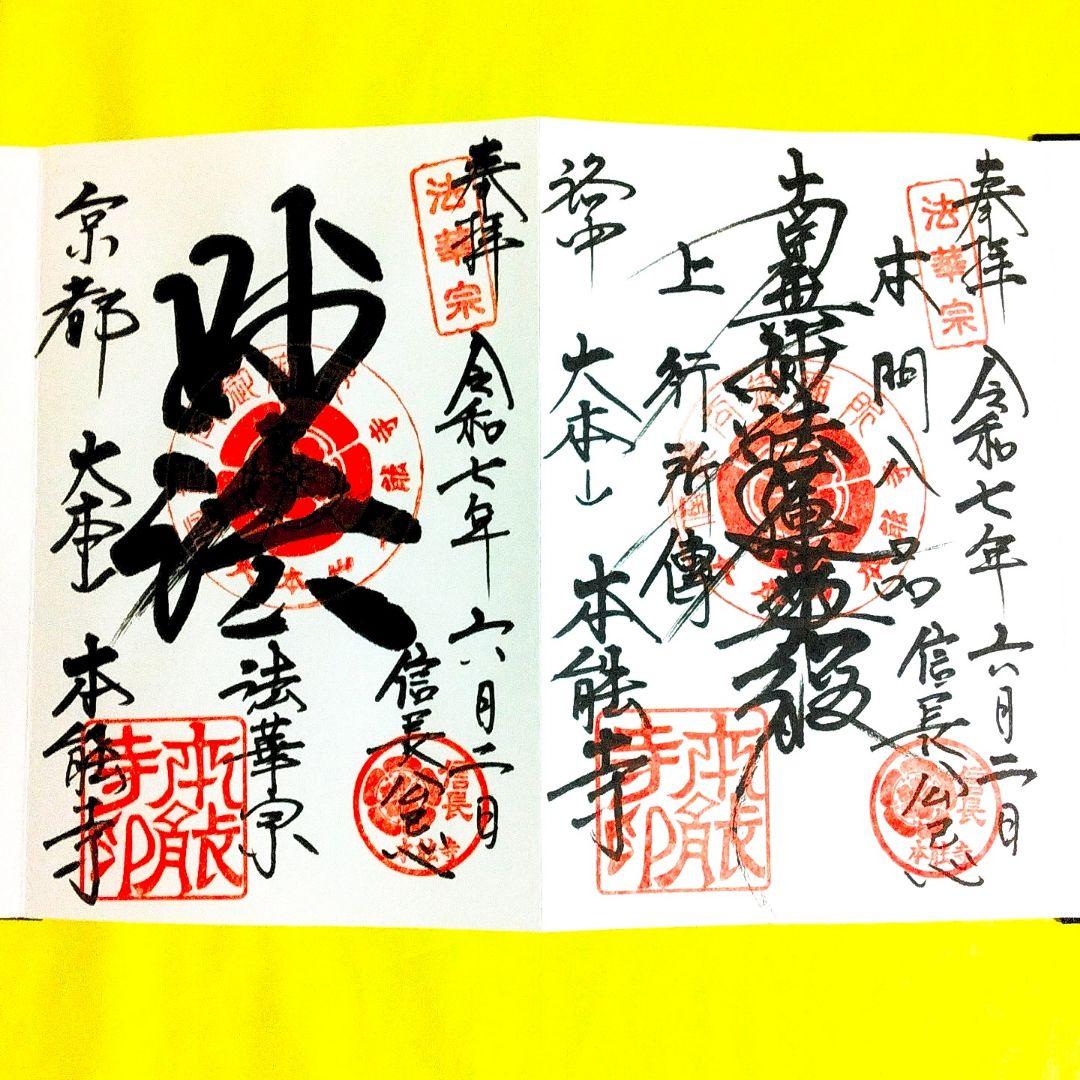 奉拝
法華宗
令和七年 六月二日
信長公忌
信長
本能寺
本門八品
南無妙法蓮華経
上行所傳
洛中 大本山 本能寺
本能寺印
奉拝
法華宗
令和七年 六月二日
信長公忌
信長
本能寺
妙法
法華宗
京都 大本山 本能寺
本能寺印